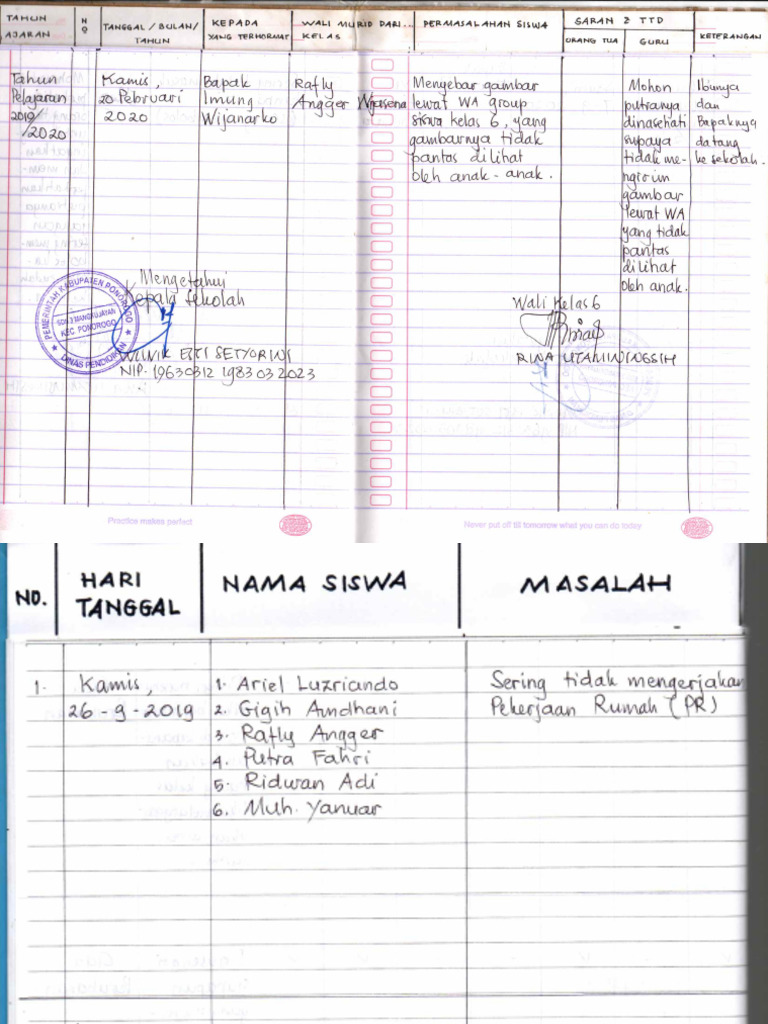 TAHUN AJARAN
NO
TANGGAL / BULAN / TAHUN
KEPADA YANG TERHORMAT
WALI MURID DARI... KELAS
PERMASALAHAN SISWA
SARAN & TTD
ORANG TUA
GURU
KETERANGAN
Tahun
Pelajaran
2019/
/2020
Kamis,
20 Pebruari
2020
Bapak
Imung
Wijanarko
Rafly
Angger Wijasena
Menyebar gambar
lewat WA group
siswa kelas 6, yang
gambarnya tidak
pantas dilihat
oleh anak-anak.
Mohon
putranya
dinasehati
supaya
tidak me-
ngirim
gambar
lewat WA
yang tidak
pantas
dilihat
oleh anak.
Ibunya
dan
Bapaknya
datang
ke sekolah.
Mengetahui
Kepala Sekolah
PEMERINTAH KABUPATEN PONOROGO
SDN 3 MANGKUJAYAN
KEC. PONOROGO
DINAS PENDIDIKAN
WUNIK ESTI SETYORINI
NIP. 19630312 198303 2023
Wali Kelas 6
RINA UTAMININGSIH
Practice makes perfect
Never put off till tomorrow what you can do today
NO.
HARI TANGGAL
NAMA SISWA
MASALAH
1.
Kamis,
26-9-2019
1. Ariel Luzriando
2. Gigih Andhani
3. Rafly Angger
4. Putra Fahri
5. Ridwan Adi
6. Muh. Yanuar
Sering tidak mengerjakan
Pekerjaan Rumah (PR)